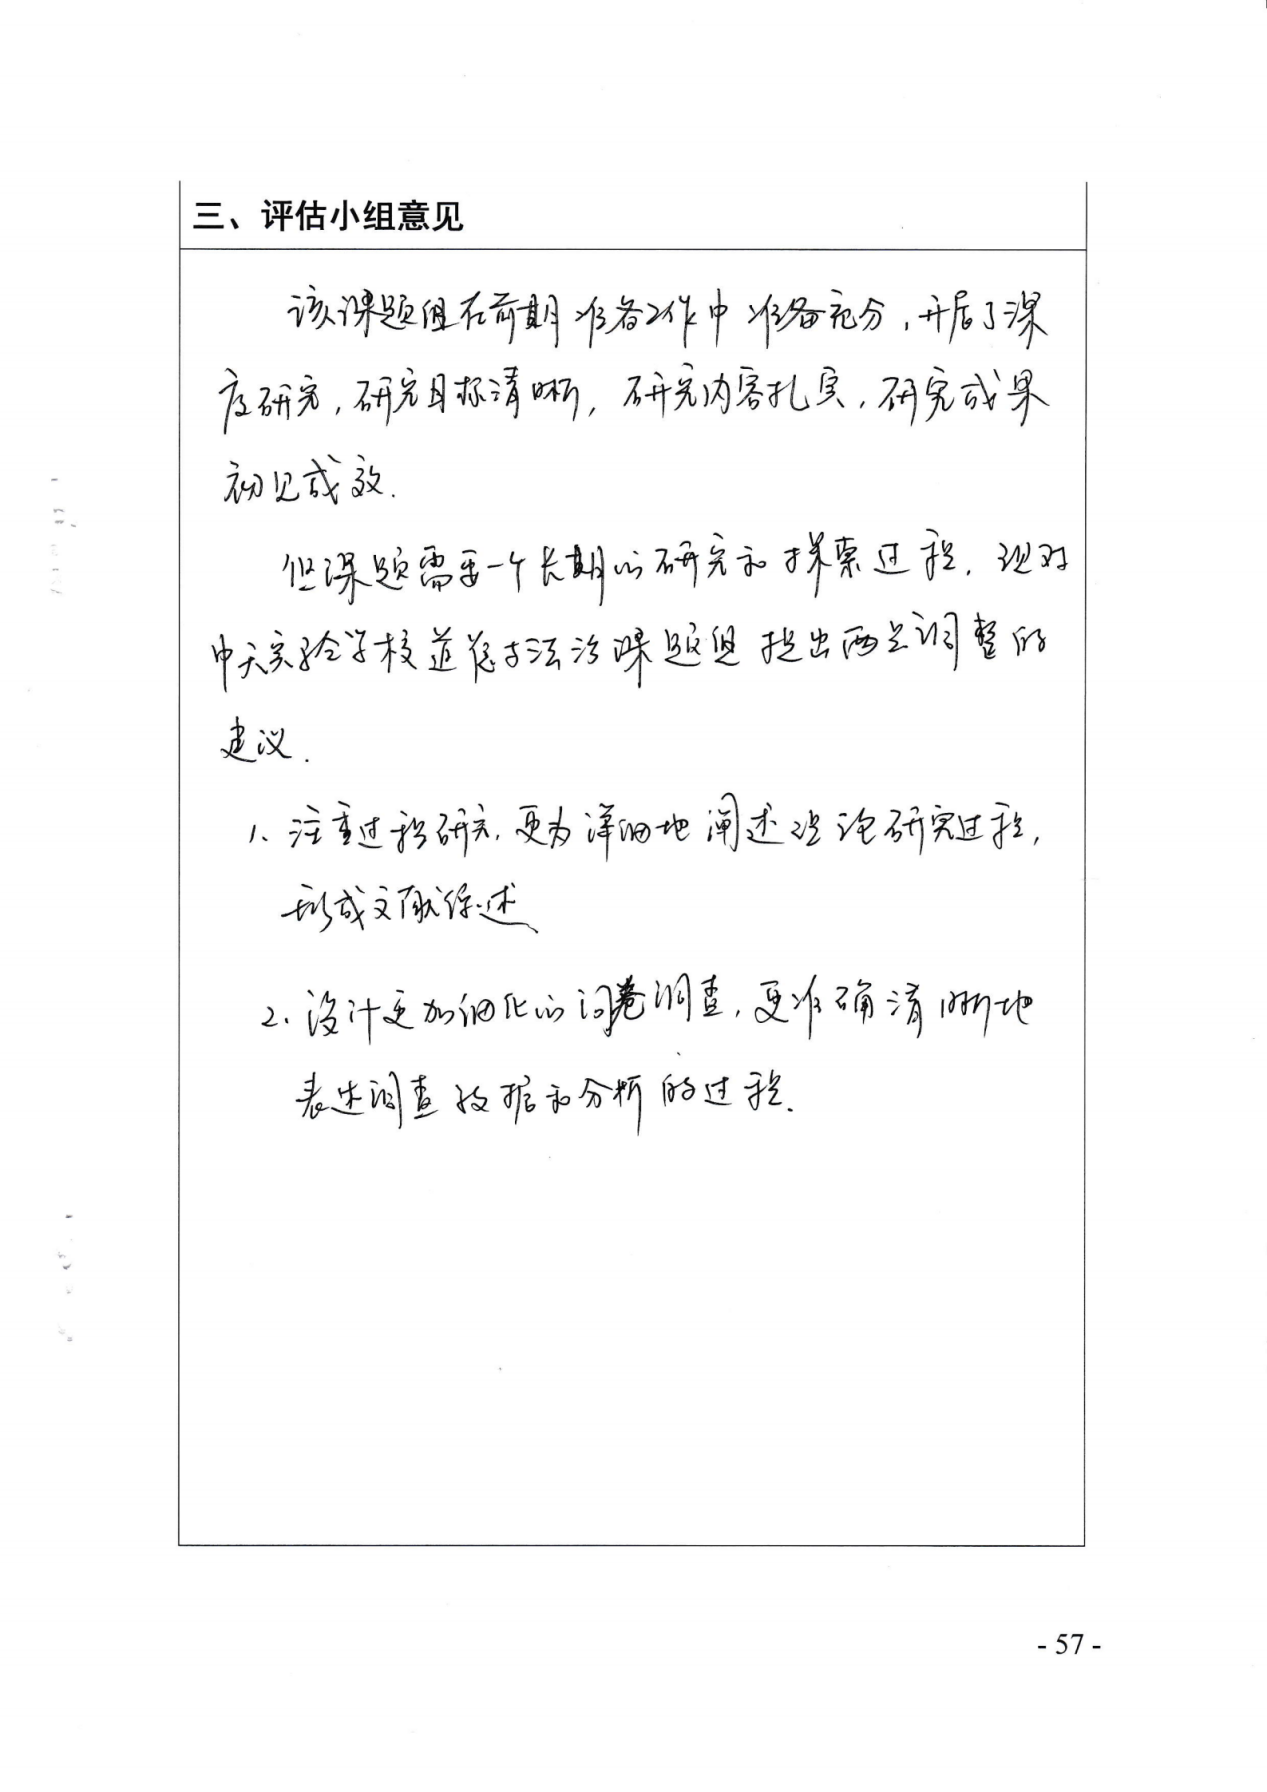 三、评估小组意见
该课题组在前期准备工作中准备充分，开启了深
度研究，研究目标清晰，研究内容扎实，研究成果
初见成效.
但课题需要一个长期的研究和探索过程，现对
中天实验学校道德与法治课题组提出两点调整的
建议.
1、注重过程研究，更为详细地阐述理论研究过程，
形成文献综述
2、设计更加细化的问卷调查，更准确清晰地
表述调查数据和分析的过程.
- 57 -